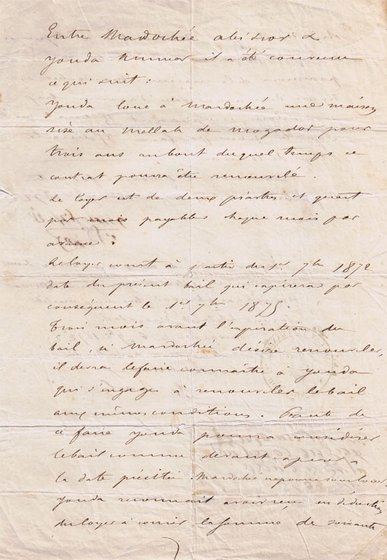 Entre Mardochée
youda il a été convenu
ce qui suit :
youda loue à Mardochée une maison
sise au Mellah de Mogador pour
trois ans au bout duquel temps ce
contrat pourra être renouvelé.
Le loyer est de deux piastres et quart
par mois payables chaque mois par
avance.
Le loyer court à partir du 1er 7bre 1872
date du présent bail qui expirera par
conséquent le 1er 7bre 1875
Trois mois avant l'expiration du
bail, si Mardochée désire renouveler,
il devra le faire connaître à youda
qui s'engage à renouveler le bail
aux mêmes conditions. Faute de
ce faire youda pourra considérer
le bail comme devant
la date précitée. Mardochée
youda reconnait avoir reçu en déduction
du loyer à courir la somme de soixante